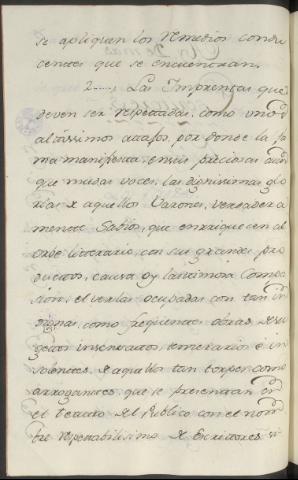 se apliquen los remedios condu
centes que se encuentran.
2...., Las Imprentas que
deven ser respectadas, como unos
altissimos por donde la fa
ma manifiesta en sus preciosas aun
que mudas voces, las dignisimas glo
rias de aquellos Varones, verdadera
mente Sabios, que enriquecen al
orbe litterario, con sus grandes pro
ductos, causa oy lastimosa compa
sion, el verlas ocupadas con tan in
dignas, como freqüentes obras de su
getos insensatos, temerarios, è in
solentes, de aquellos tan torpes, como
arrogantes que se presentan en
el teatro del Publico con el nom
bre respetabilisimo de Escritores,